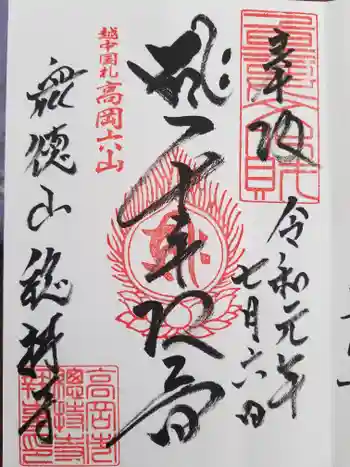 奉拝
令和元年
七月六日
千手観音
越中国札
高岡六山
衆徳山 総持寺
高岡市
總持寺